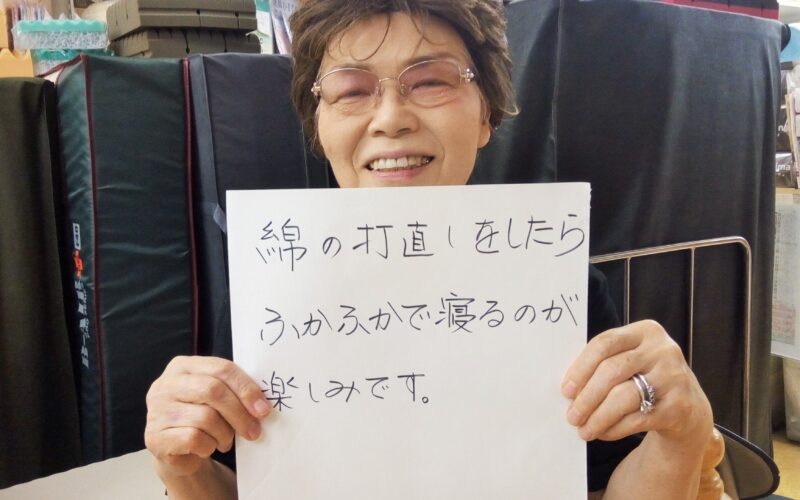 綿の打直しをしたら
ふかふかで寝るのが
楽しみです。